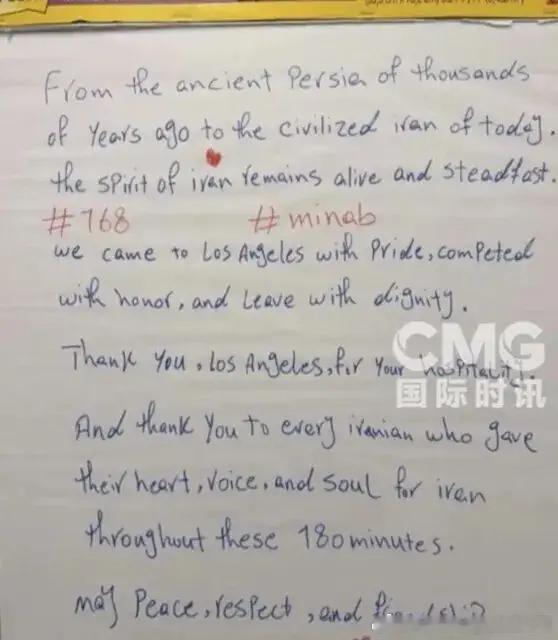 From the ancient Persia of thousands
of Years ago to the civilized iran of today.
the spirit of iran remains alive and steadfast.
#168 #minab
we came to Los Angeles with Pride, competed
with honor, and Leave with dignity.
Thank You, Los Angeles, for Your hospitality.
CMG
国际时讯
And thank You to every iranian who gave
their heart, voice, and soul for iran
throughout these 180 minutes.
may Peace, respect, and